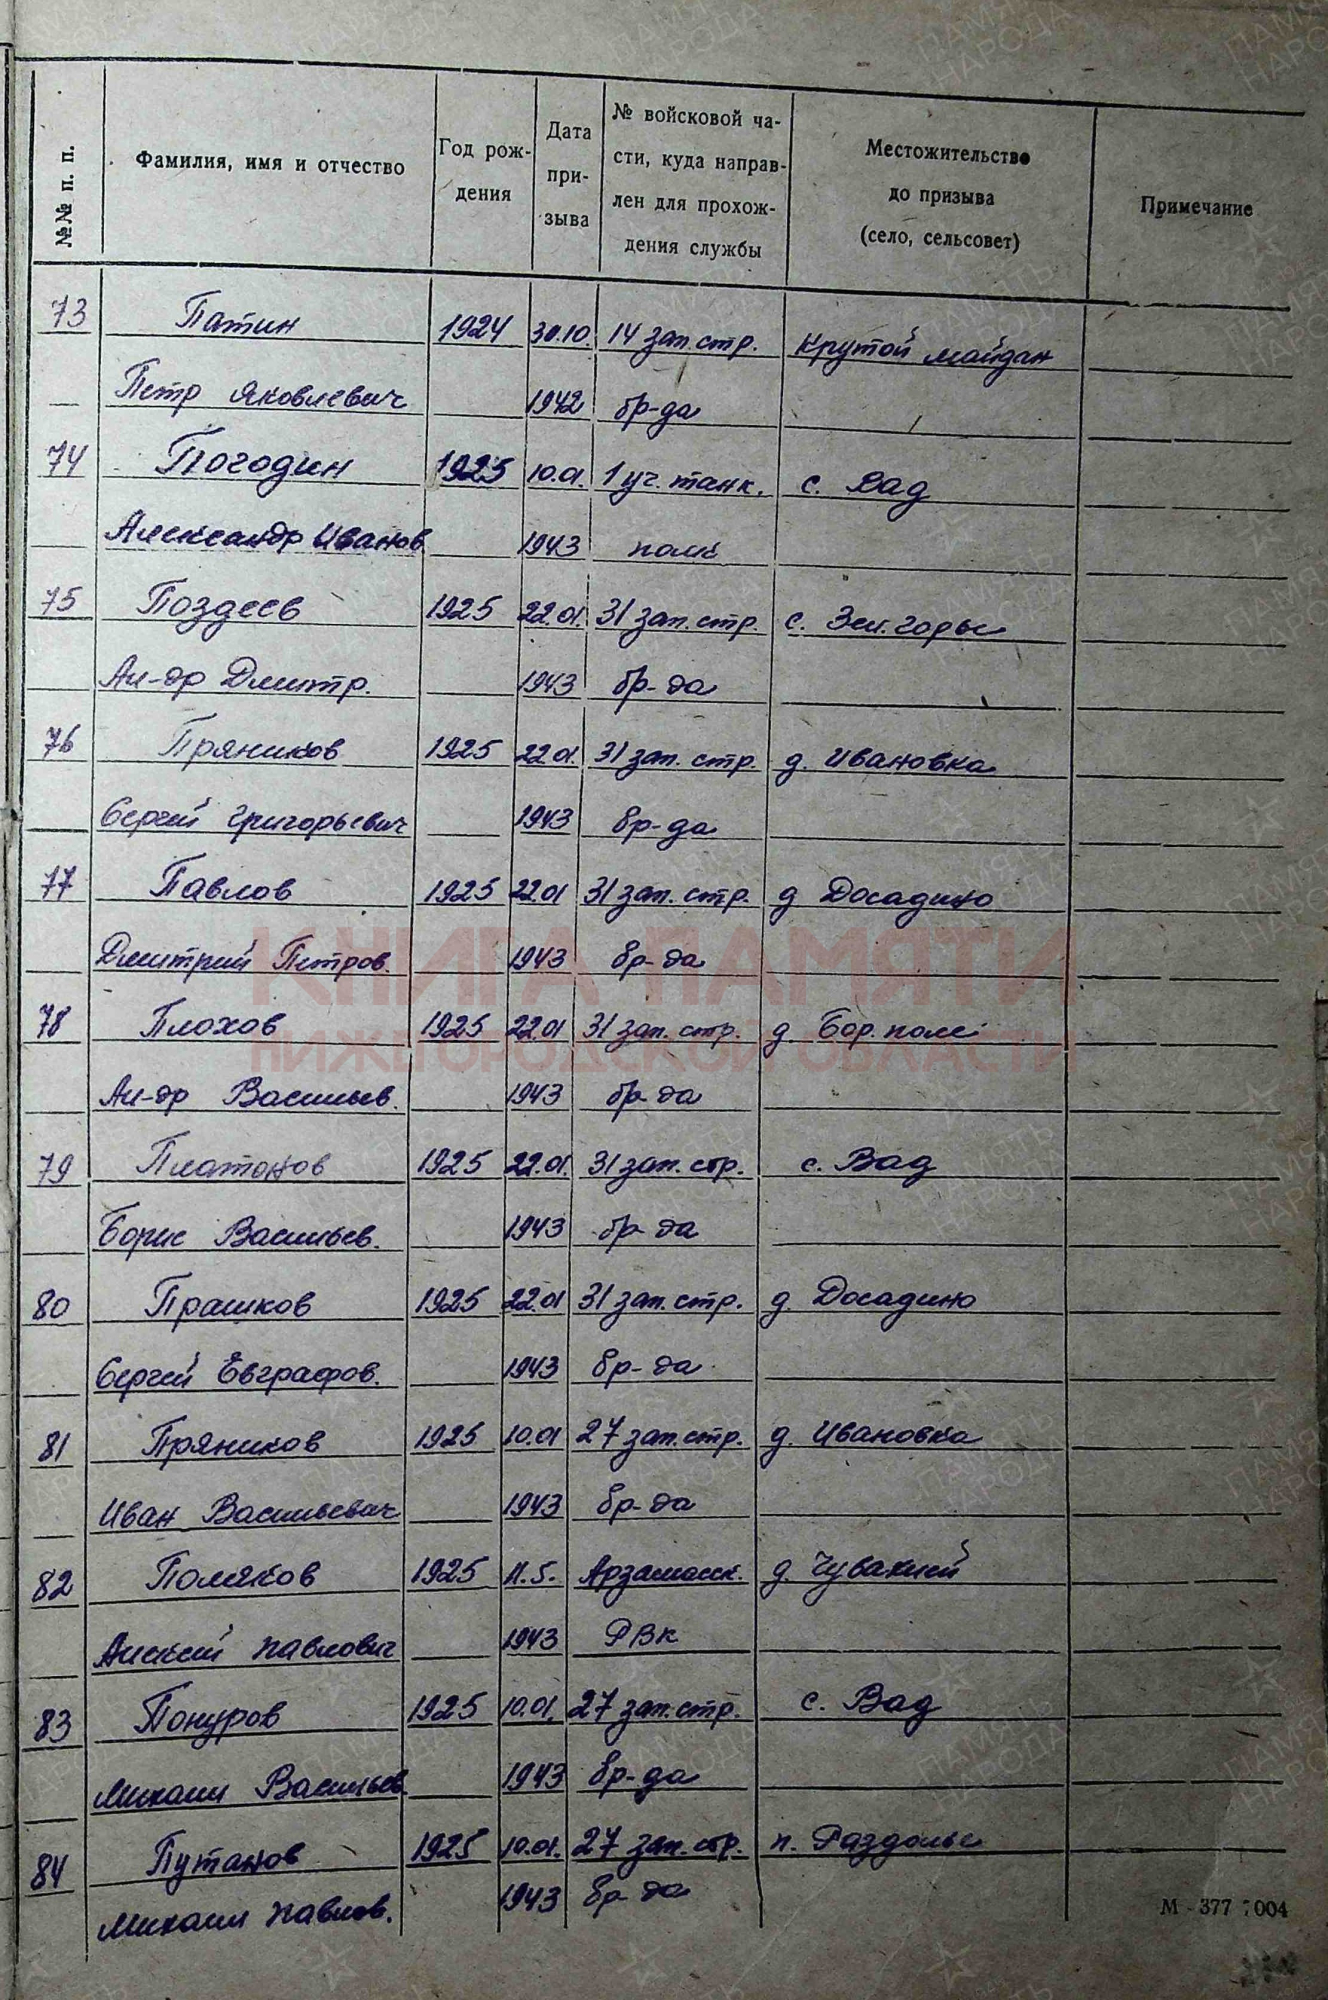 №№ п. п.
Фамилия, имя и отчество
Год рож-
дения
Дата
при-
зыва
№ войсковой ча-
сти, куда направ-
лен для прохож-
дения службы
Местожительство
до призыва
(село, сельсовет)
Примечание
73 Патин 1924 30.10. 14 зап. стр. Крутой майдан
Петр Яковлевич 1942 бр-да
74 Погодин 1925 10.01. 1 уч. танк. с. Вад
Александр Иванов 1943 полк
75 Поздеев 1925 22.01. 31 зап. стр. с. Зел. горы
Ал-др Дмитр. 1943 бр-да
76 Пряников 1925 22.01. 31 зап. стр. д. Ивановка
Сергей Григорьевич 1943 бр-да
77 Павлов 1925 22.01 31 зап. стр. д Досадино
Дмитрий Петров. 1943 бр-да
КНИГА ПАМЯТИ
НИЖЕГОРОДСКОЙ ОБЛАСТИ
78 Плохов 1925 22.01 31 зап. стр. д. Бор. поле
Ал-др Васильев. 1943 бр-да
79 Платонов 1925 22.01. 31 зап. стр. с. Вад
Борис Васильев. 1943 бр-да
80 Прашков 1925 22.01 31 зап. стр. д. Досадино
Сергей Евграфов. 1943 бр-да
81 Пряников 1925 10.01 27 зап. стр. д. Ивановка
Иван Васильевич 1943 бр-да
82 Поляков 1925 11.5. Арзамасск. д. Чувахлей
Алексей Павлович 1943 РВК
83 Понуров 1925 10.01. 27 зап. стр. с. Вад
Михаил Васильев 1943 бр-да
84 Путанов 1925 10.01. 27 зап. стр. п. Раздолье
Михаил Павлов. 1943 бр-да
М-377 004